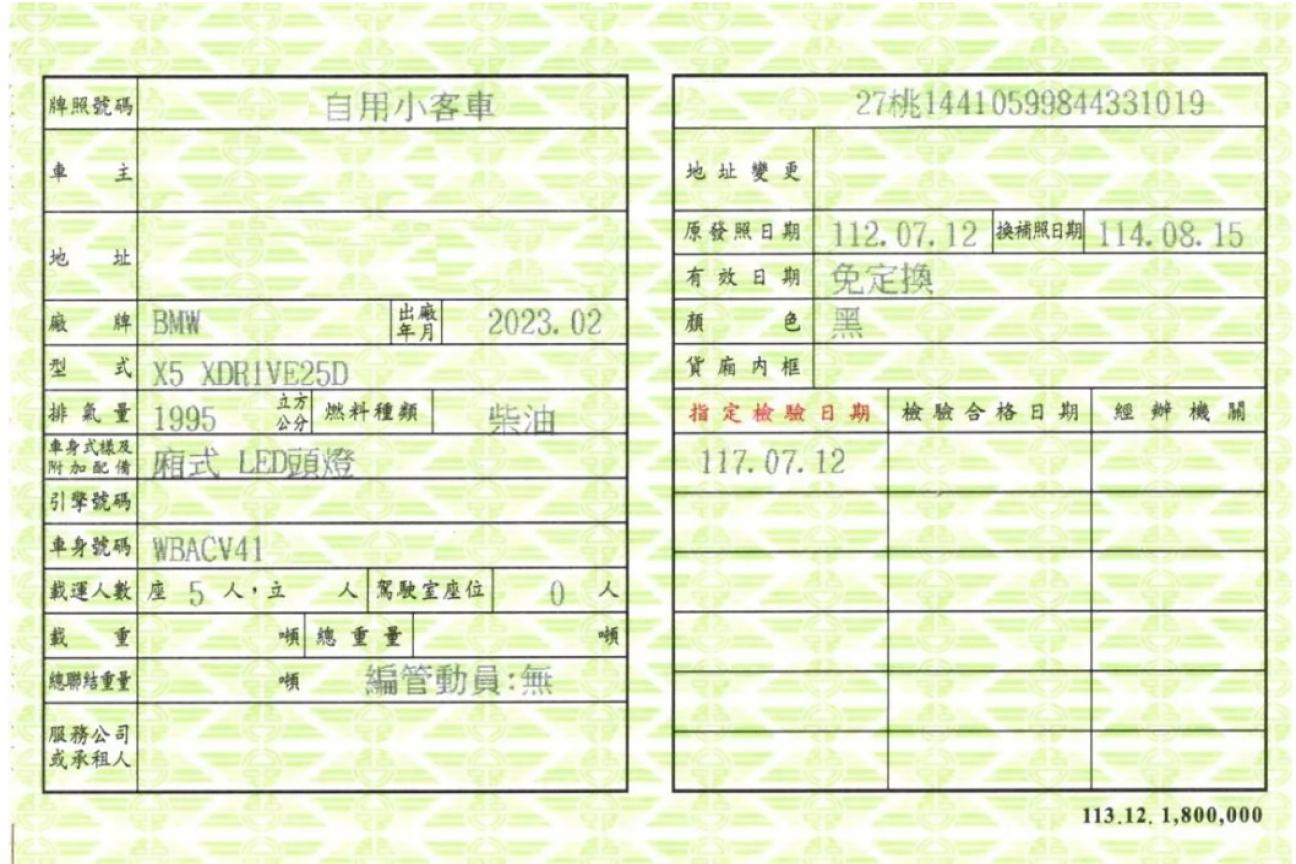 牌照號碼 自用小客車
車主
地址
廠牌 BMW 出廠年月 2023.02
型式 X5 XDR1VE25D
排氣量 1995 立方公分 燃料種類 柴油
車身式樣及附加配備 廂式 LED頭燈
引擎號碼
車身號碼 WBACV41
載運人數 座 5 人，立 人 駕駛室座位 0 人
載重 噸 總重量 噸
總聯結重量 噸 編管動員:無
服務公司或承租人
27桃14410599844331019
地址變更
原發照日期 112.07.12 換補照日期 114.08.15
有效日期 免定換
顏色 黑
貨廂內框
指定檢驗日期 檢驗合格日期 經辦機關
117.07.12
113.12. 1,800,000